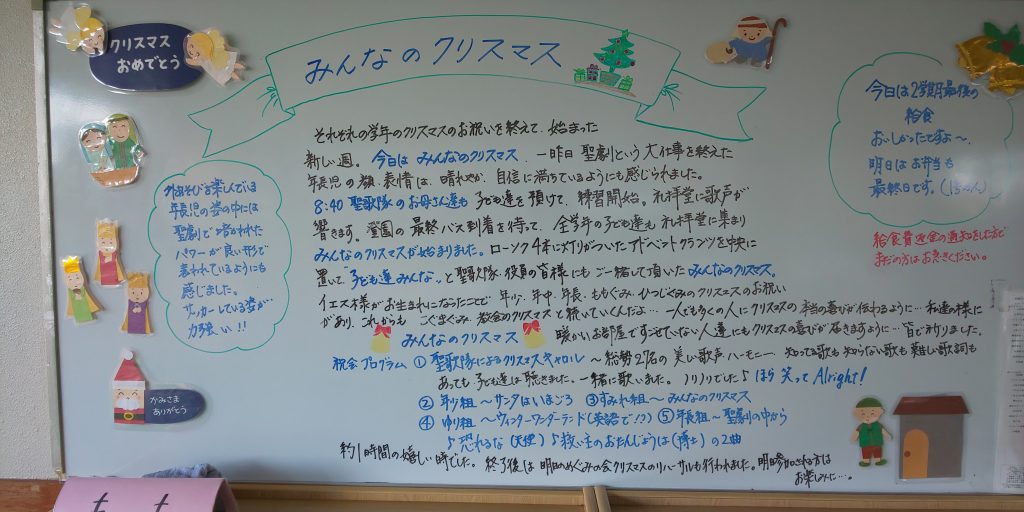 クリスマス
おめでとう
みんなのクリスマス
それぞれの学年のクリスマスのお祝いを終えて、始まった
新しい週。今日は みんなのクリスマス。一昨日 聖劇という大仕事を終えた
年長児の顔、表情は、晴れやか、自信に満ちているようにも感じられました。
8:40 聖歌隊のお母さん達も 子ども達を預けて、練習開始。礼拝堂に歌声が
響きます。登園の最終バス到着を待って、全学年の子ども達も 礼拝堂に集まり
みんなのクリスマスが始まりました。ローソク4本に灯りがついたアドベントクランツを中央に
置いて、子ども達みんな、と 聖歌隊、役員の皆様にもご一緒して頂いたみんなのクリスマス。
イエス様がお生まれになったことで、年少、年中、年長、ももぐみ、ひつじぐみのクリスマスのお祝い
があり、これからも こぐまぐみ、教会のクリスマスと続いていくんだよ…一人でも多くの人にクリスマスの本当の喜びが伝わるように…私達の様に
みんなのクリスマス
暖かいお部屋ですごせていない人達にもクリスマスの喜びが届きますように…皆で祈りました。
祝会プログラム ①聖歌隊によるクリスマスキャロル〜総勢21名の美しい歌声ハーモニー、知ってる歌も知らない歌も難しい歌詞も
あっても子ども達は聴きました。一緒に歌いました。ノリノリでした♪ ほら笑ってAlright!
②年少組〜サンタはいまごろ ③すみれ組〜みんなのクリスマス
④ゆり組〜ウィンターワンダーランド(英語で!?) ⑤年長組〜聖劇の中から
♪恐れるな(天使) ♪救い主のおたんじょうは(博士)の2曲
約1時間の嬉しい時でした。終了後は明日のめぐみの会クリスマスのリハーサルも行われました。明日参加される方は
お楽しみに…。
外あそびを楽しんでいる
年長児の姿の中には
聖劇で培われた
パワーが良い形で
表われているようにも
感じました。
サッカーしている姿が…
力強い!!
かみさま
ありがとう
今日は2学期最後の
給食
おいしかったですよ〜。
明日はお弁当も
最終日です。
給食費返金の通知をした方で
まだの方はお急ぎください。